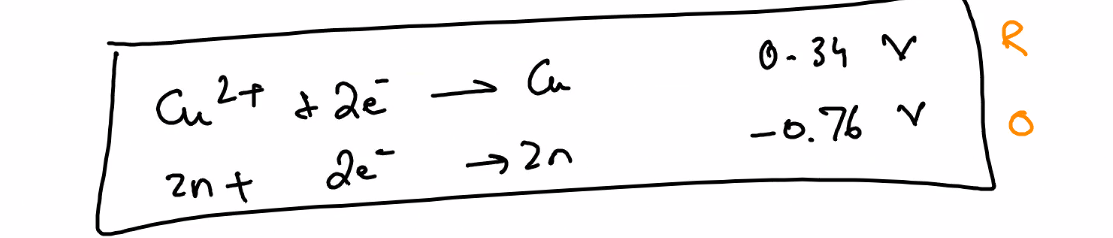 Cu²⁺ + 2e⁻ → Cu 0.34 V R
Zn + 2e⁻ → Zn -0.76 V O